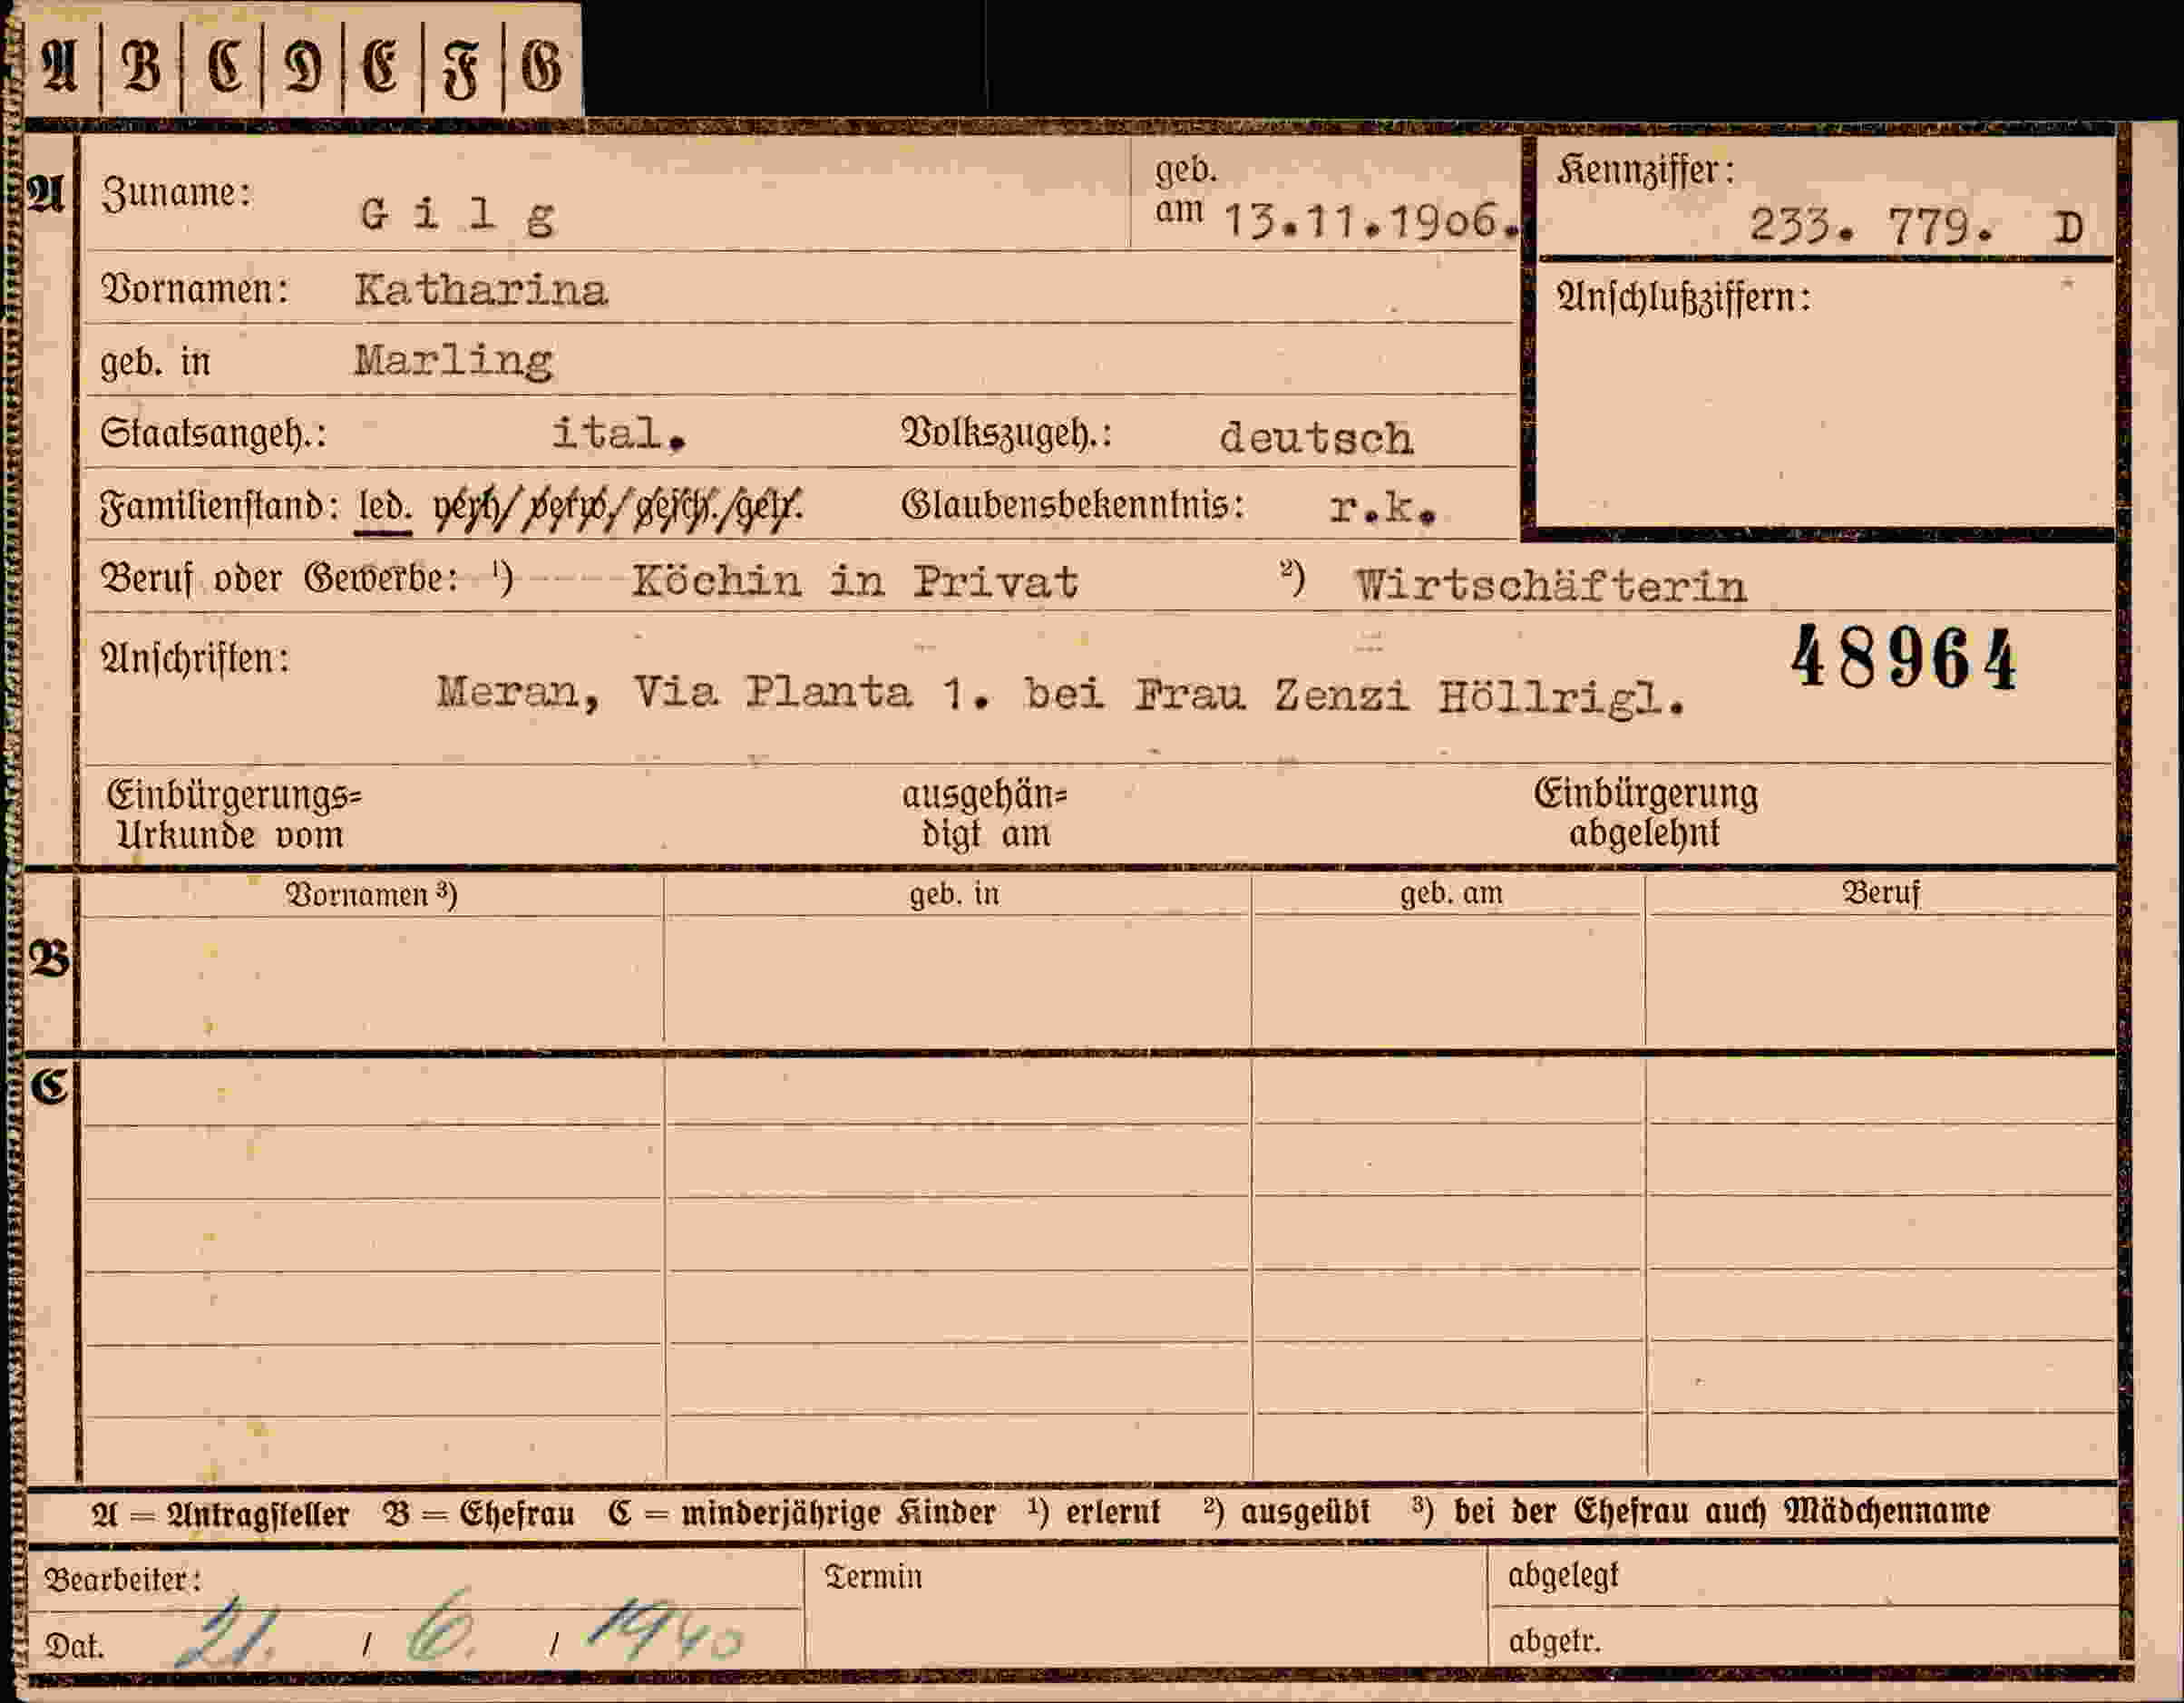 A | B | C | D | E | F | G
A Zuname: Gilg geb. am 13.11.1906. Kennziffer: 233. 779. D
Vornamen: Katharina Anschlußziffern:
geb. in Marling
Staatsangeh.: ital. Volkszugeh.: deutsch
Familienstand: led. verh/verw./gesch./getr. Glaubensbekenntnis: r.k.
Beruf oder Gewerbe: ¹) Köchin in Privat ²) Wirtschäfterin
Anschriften: 48964
Meran, Via Planta 1. bei Frau Zenzi Höllrigl.
Einbürgerungs= ausgehän= Einbürgerung
Urkunde vom digt am abgelehnt
Vornamen ³) geb. in geb. am Beruf
B
C
A = Antragsteller B = Ehefrau C = minderjährige Kinder ¹) erlernt ²) ausgeübt ³) bei der Ehefrau auch Mädchenname
Bearbeiter: Termin abgelegt
Dat. 21. / 6. / 1940 abgetr.